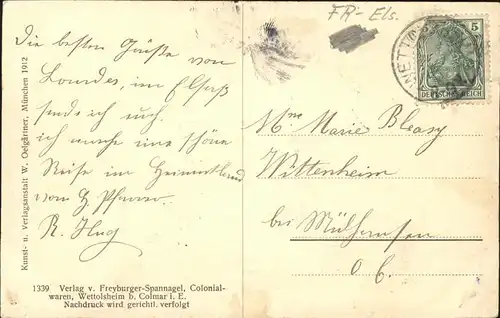 FR-Els.
5
DEUTSCHES REICH
WETTO
Die besten Grüße von
Lourdes, im Elsaß
sende ich euch.
ich mache eine schöne
Reise im
vom H. Pfarrer
R. Hug
Mme Marie Bleasy
Wittenheim
bei Mülhausen
O E.
Kunst- u. Verlagsanstalt W. Oelgärtner, München 1912
1339 Verlag v. Freyburger-Spannagel, Colonial-
waren, Wettolsheim b. Colmar i. E.
Nachdruck wird gerichtl. verfolgt